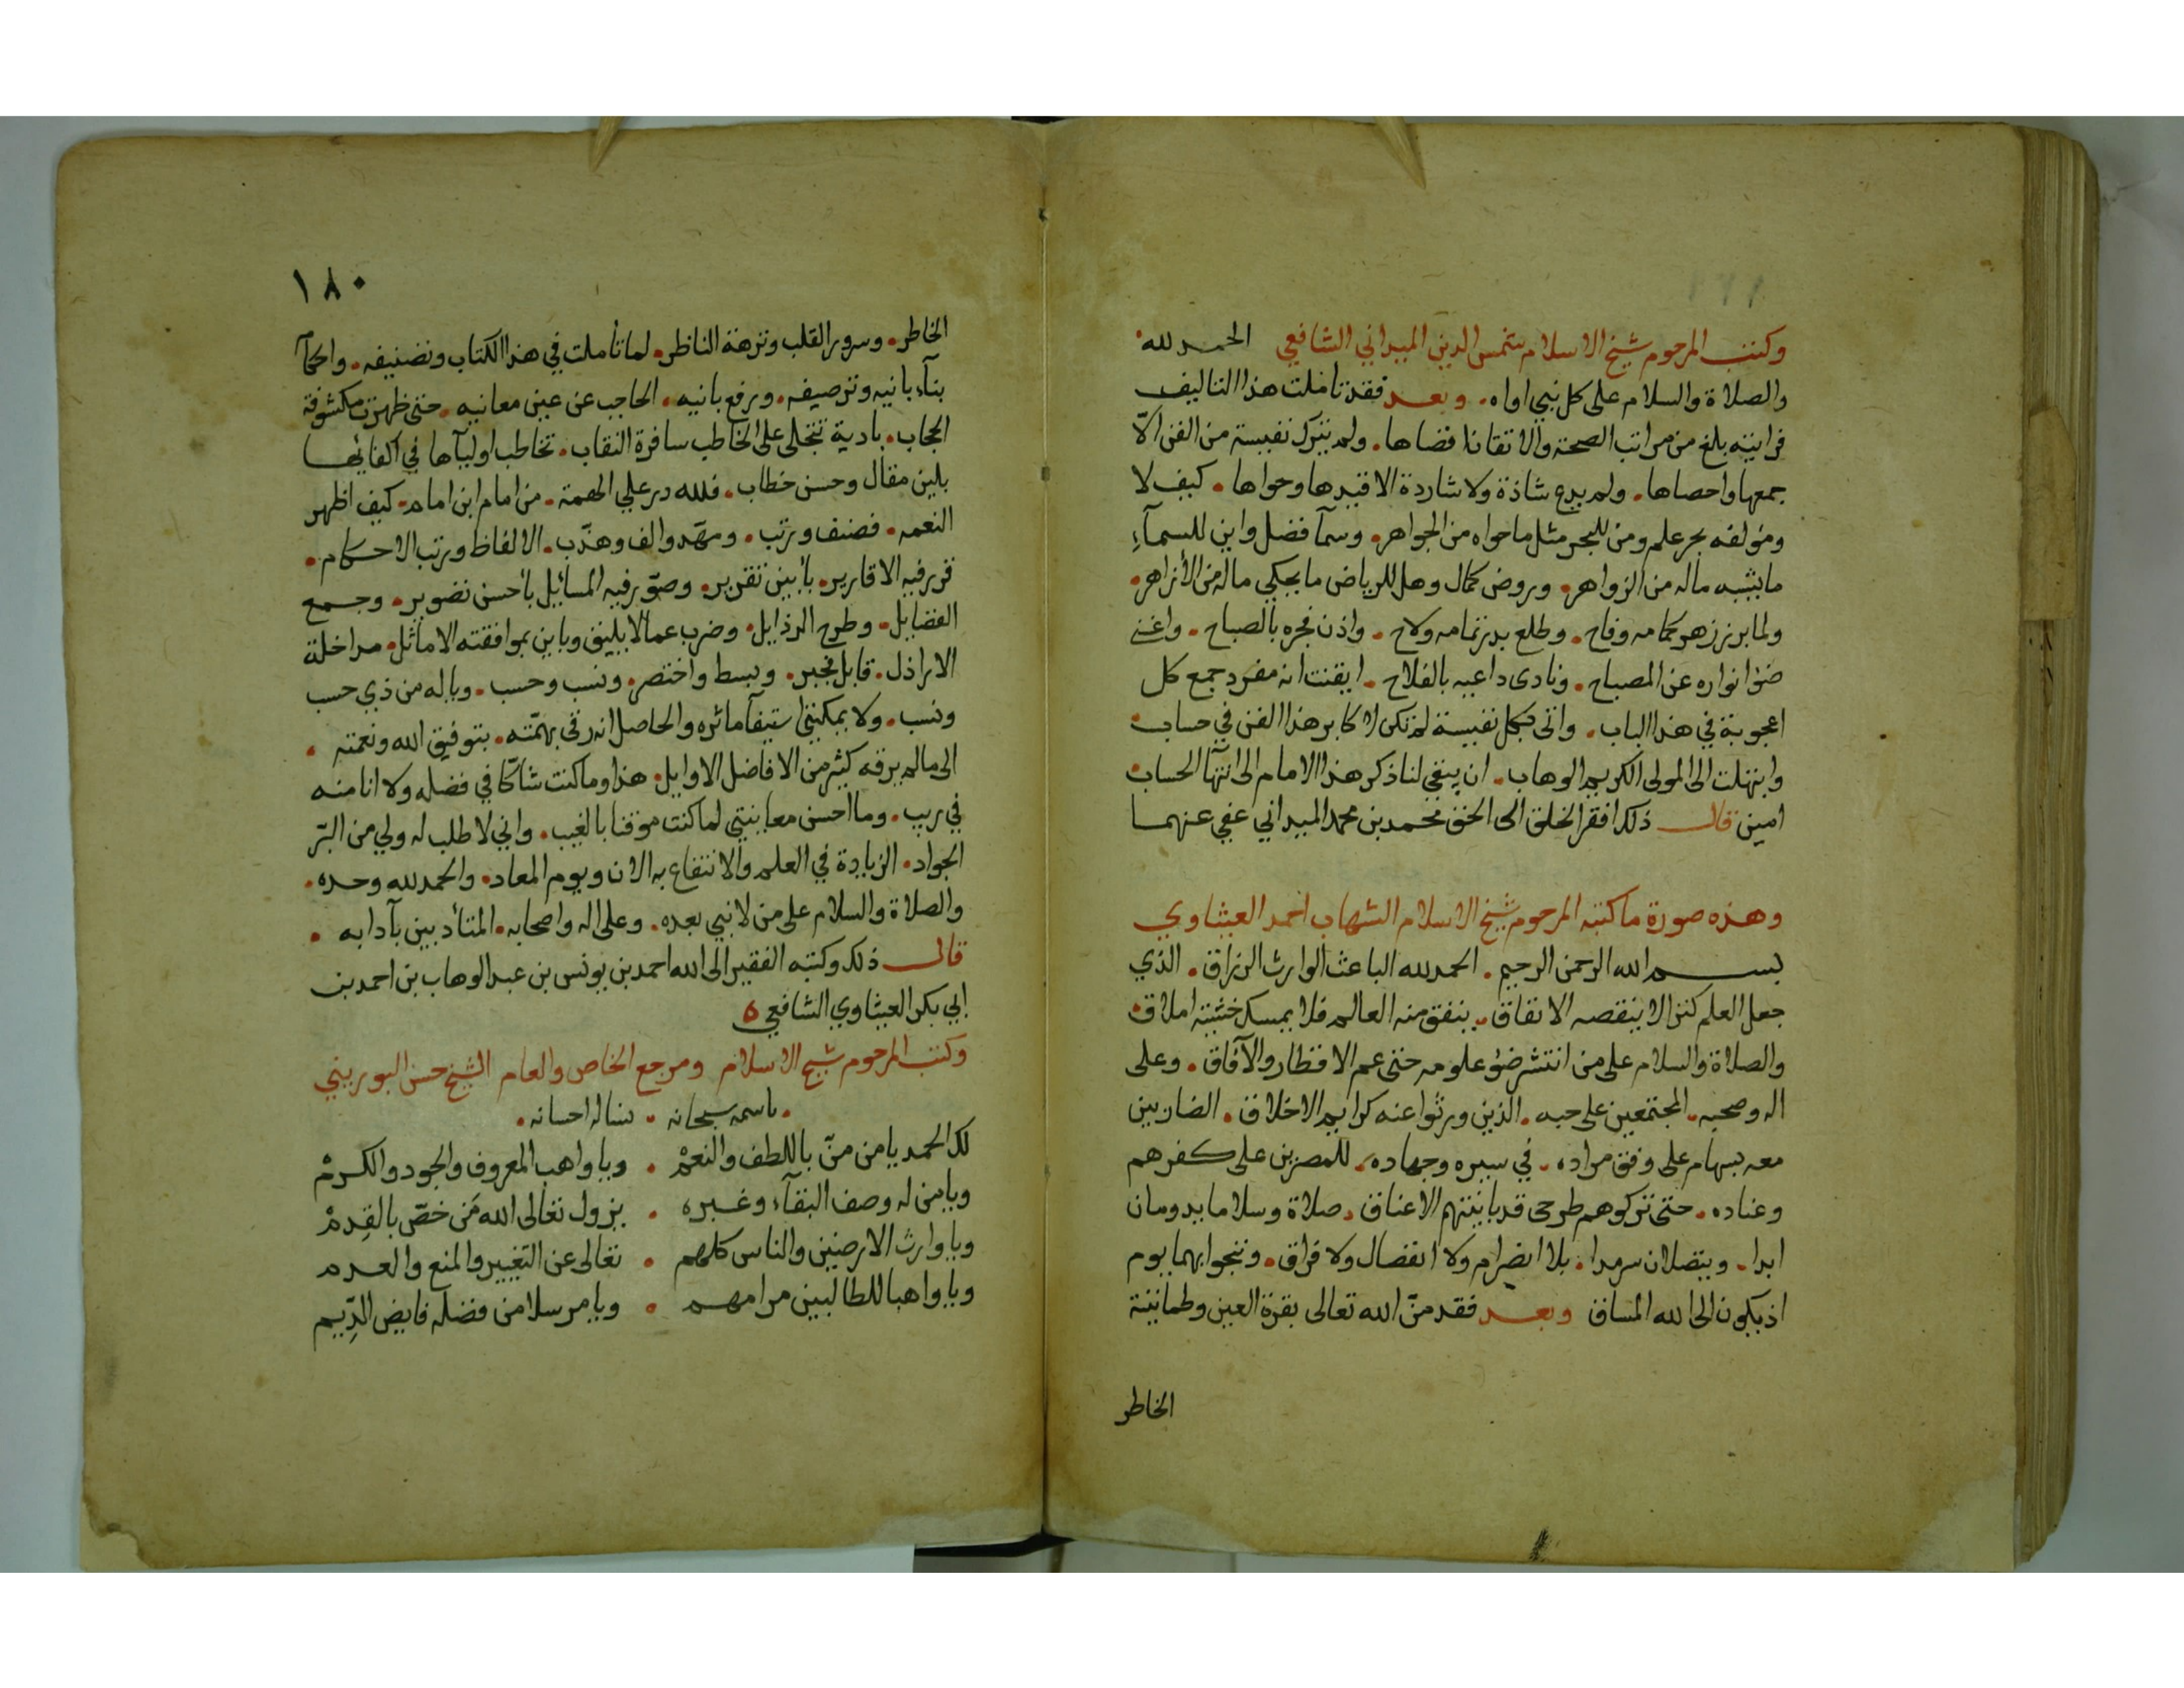 وكتب المرحوم شيخ الاسلام شمس الدين الميداني الشافعي الحمد لله
والصلاة والسلام على كل نبي اواه . وبعد فقد تاملت هذا التاليف
فرايته بلغ من مراتب الصحة والاتقان اقصاها . ولم يترك نفيسة من الفن الاّ
جمعها واحصاها . ولم يدع شاذة ولا شاردة الا قيدها وحواها . كيف لا
ومؤلفه بحر علم ومن للبحر مثل ما حواه من الجواهر . وسمآ فضل واين للسمآءِ
ما يشبه ماله من الزواهر . وروض كمال وهل للرياض ما يحكي ماله من الأزاهر .
ولما برز زهر كمامه وفاح . وطلع بدر تمامه ولاح . واذن فجره بالصباح . واغنى
ضؤ انواره عن المصباح . ونادى داعيه بالفلاح . ايقنت انه مفرد جمع كل
اعجوبة في هذا الباب . واتى بكل نفيسة لم تكن لاكابر هذا الفن في حساب .
وابتهلت الى المولى الكريم الوهاب . ان يبقي لنا ذكر هذا الامام الى انتهآ الحساب .
امين قال ذلك افقر الخلق الى الحق محمد بن محمد الميداني عفي عنهما
وهذه صورة ما كتبه المرحوم شيخ الاسلام الشهاب احمد العيثاوي
بسم الله الرحمن الرحيم . الحمد لله الباعث الوارث الرزاق . الذي
جعل العلم كنزا لا ينقصه الانفاق . ينفق منه العالم فلا يمسك خشية املاق .
والصلاة والسلام على من انتشر ضؤ علومه حتى عم الاقطار والآفاق . وعلى
اله وصحبه . المجتمعين على حبه . الذين ورثوا عنه كرايم الاخلاق . الضاربين
معه بسهام على وفق مراده . في سيره وجهاده . للمصرين على كفرهم
وعناده . حتى تركوهم طرحى قد باينتهم الاعناق . صلاة وسلاما يدومان
ابدا . ويتصلان سرمدا . بلا انصرام ولا انفصال ولا فراق . وننجوا بهما يوم
اذ يكون الى الله المساق وبعد فقد منّ الله تعالى بقرة العين وطمانينة
الخاطر
١٨٠
الخاطر . وسرور القلب ونزهة الناظر . لما تأملت في هذا الكتاب وتصنيفه . واحكآم
بنآء بانيه وترصيفه . ورفع بانيه . الحاجب عن عين معانيه . حتى ظهرت مكشوفة
الحجاب . بادية تتجلى على الخاطب سافرة النقاب . تخاطب اوليآها في اكفائها
بلين مقال وحسن خطاب . فلله در علي الهمة . من امام ابن امام . كيف اظهر
النعمه . فصنف ورتب . ومهّد والف وهذّب . الالفاظ ورتب الاحكام .
قرر فيه الاقارير . بأبين تقرير . وصوّر فيه المسائيل بأحسن تصوير . وجمع
الفضايل . وطرح الرذايل . وضرب عما لا يليق وباين بموافقته الاماثل . مداخلة
الاراذل . قابل بجبر . وبسط واختصر . ونسب وحسب . وياله من ذي حسب
ونسب . ولا يمكنني استيفآ ماثره والحاصل انه رقى بهمّته . بتوفيق الله ونعمته .
الى مالم يرقه كثير من الافاضل الاوايل . هذا وما كنت شاكّا في فضله ولا انا منه
في ريب . وما احسن معاينتي لما كنت موقنا بالغيب . واني لاطلب له ولي من البرّ
الجواد . الزيادة في العلم والانتفاع به الان ويوم المعاد . والحمد لله وحده .
والصلاة والسلام على من لا نبي بعده . وعلى اله واصحابه . المتأدبين بآدابه .
قال ذلك وكتبه الفقير الى الله احمد بن يونس بن عبد الوهاب بن احمد بن
ابي بكر العيثاوي الشافعي ه
وكتب المرحوم شيخ الاسلام ومرجع الخاص والعام الشيخ حسن البوريني
. باسمه سبحانه . نساله احسانه .
لك الحمد يا من منّ باللطف والنعمْ . ويا واهب المعروف والجود والكرمْ
ويا من له وصف البقآء وغيره . يزول تعالى الله مَن خصّ بالقِدمْ
ويا وارث الارضين والناس كلهم . تعالى عن التغيير والمنع والعدم
ويا واهبا للطالبين مرامهم . ويا مرسلا من فضله فايض الدِّيم